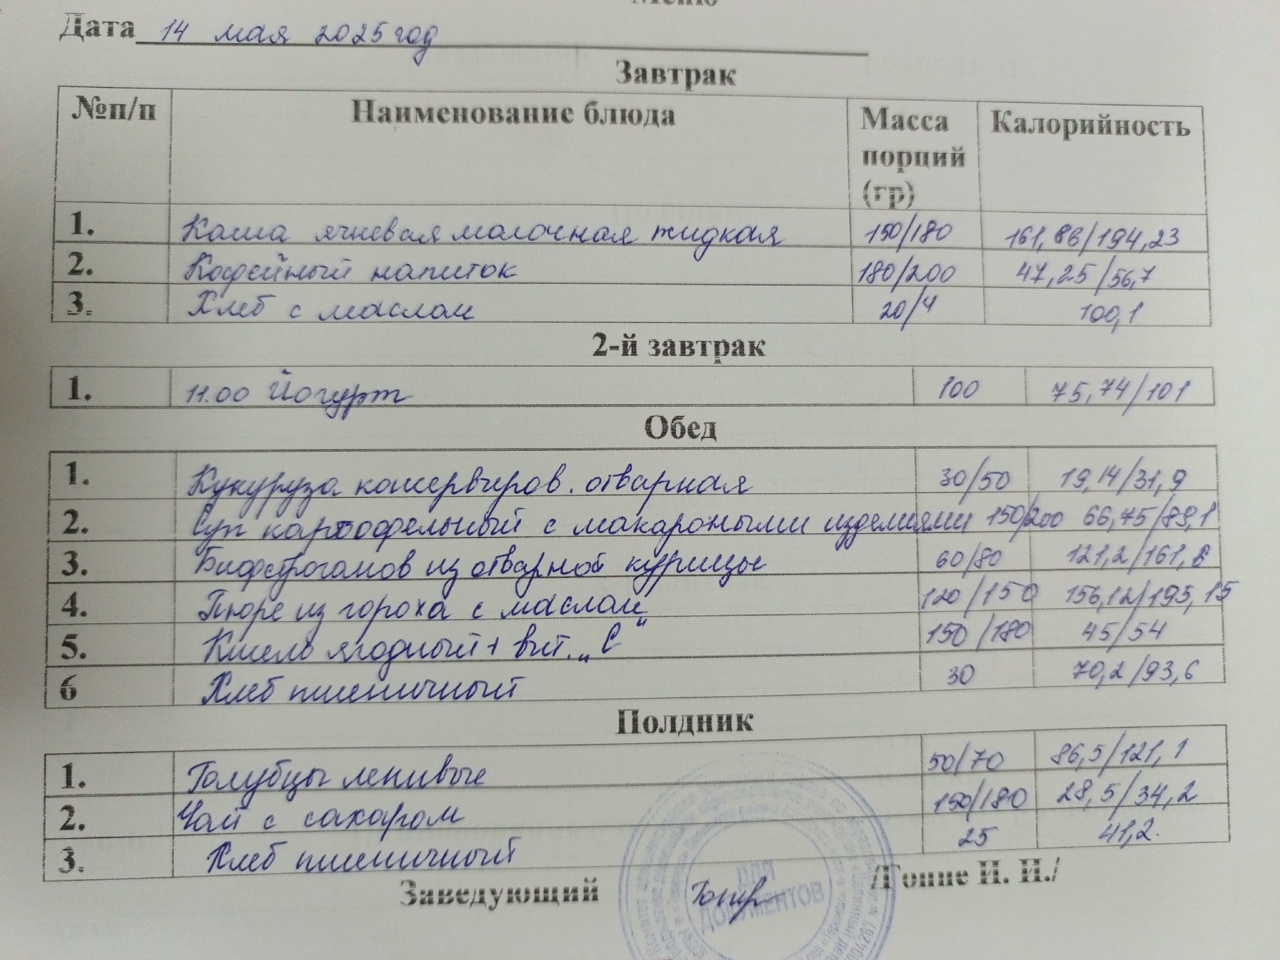 Меню
Дата 14 мая 2025 год
Завтрак
№п/п Наименование блюда Масса порций (гр) Калорийность
1. Каша ячневая молочная жидкая 150/180 161,86/194,23
2. Кофейный напиток 180/200 47,25/56,7
3. Хлеб с маслом 20/4 100,1
2-й завтрак
1. 11.00 Йогурт 100 75,74/101
Обед
1. Кукуруза консервиров. отварная 30/50 19,14/31,9
2. Суп картофельный с макароными изделиями 150/200 66,75/89,1
3. Бифстроганов из отварной курицы 60/80 121,2/161,6
4. Пюре из гороха с маслом 120/150 156,12/195,15
5. Кисель ягодный + вит. „С" 150/180 45/54
6 Хлеб пшеничный 30 70,2/93,6
Полдник
1. Голубцы ленивые 50/70 86,5/121,1
2. Чай с сахаром 150/180 28,5/34,2
3. Хлеб пшеничный 25 41,2.
Заведующий /Гоппе И. И./
ДЛЯ
ДОКУМЕНТОВ